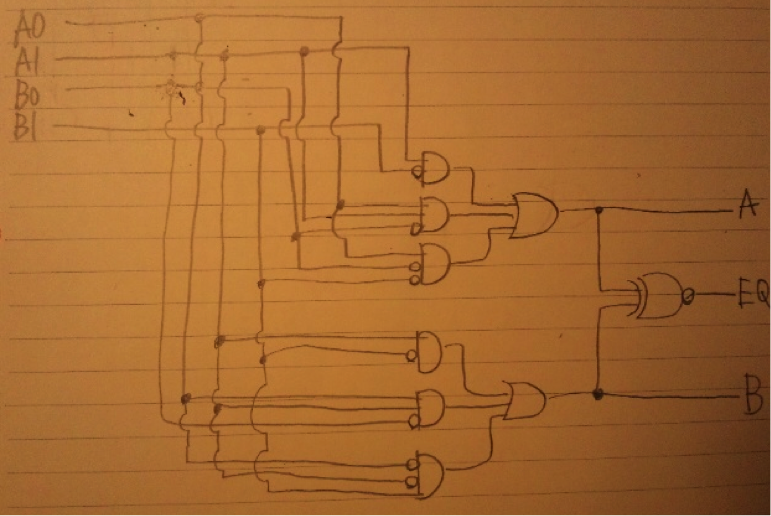 A0
A1
B0
B1
A
EQ
B